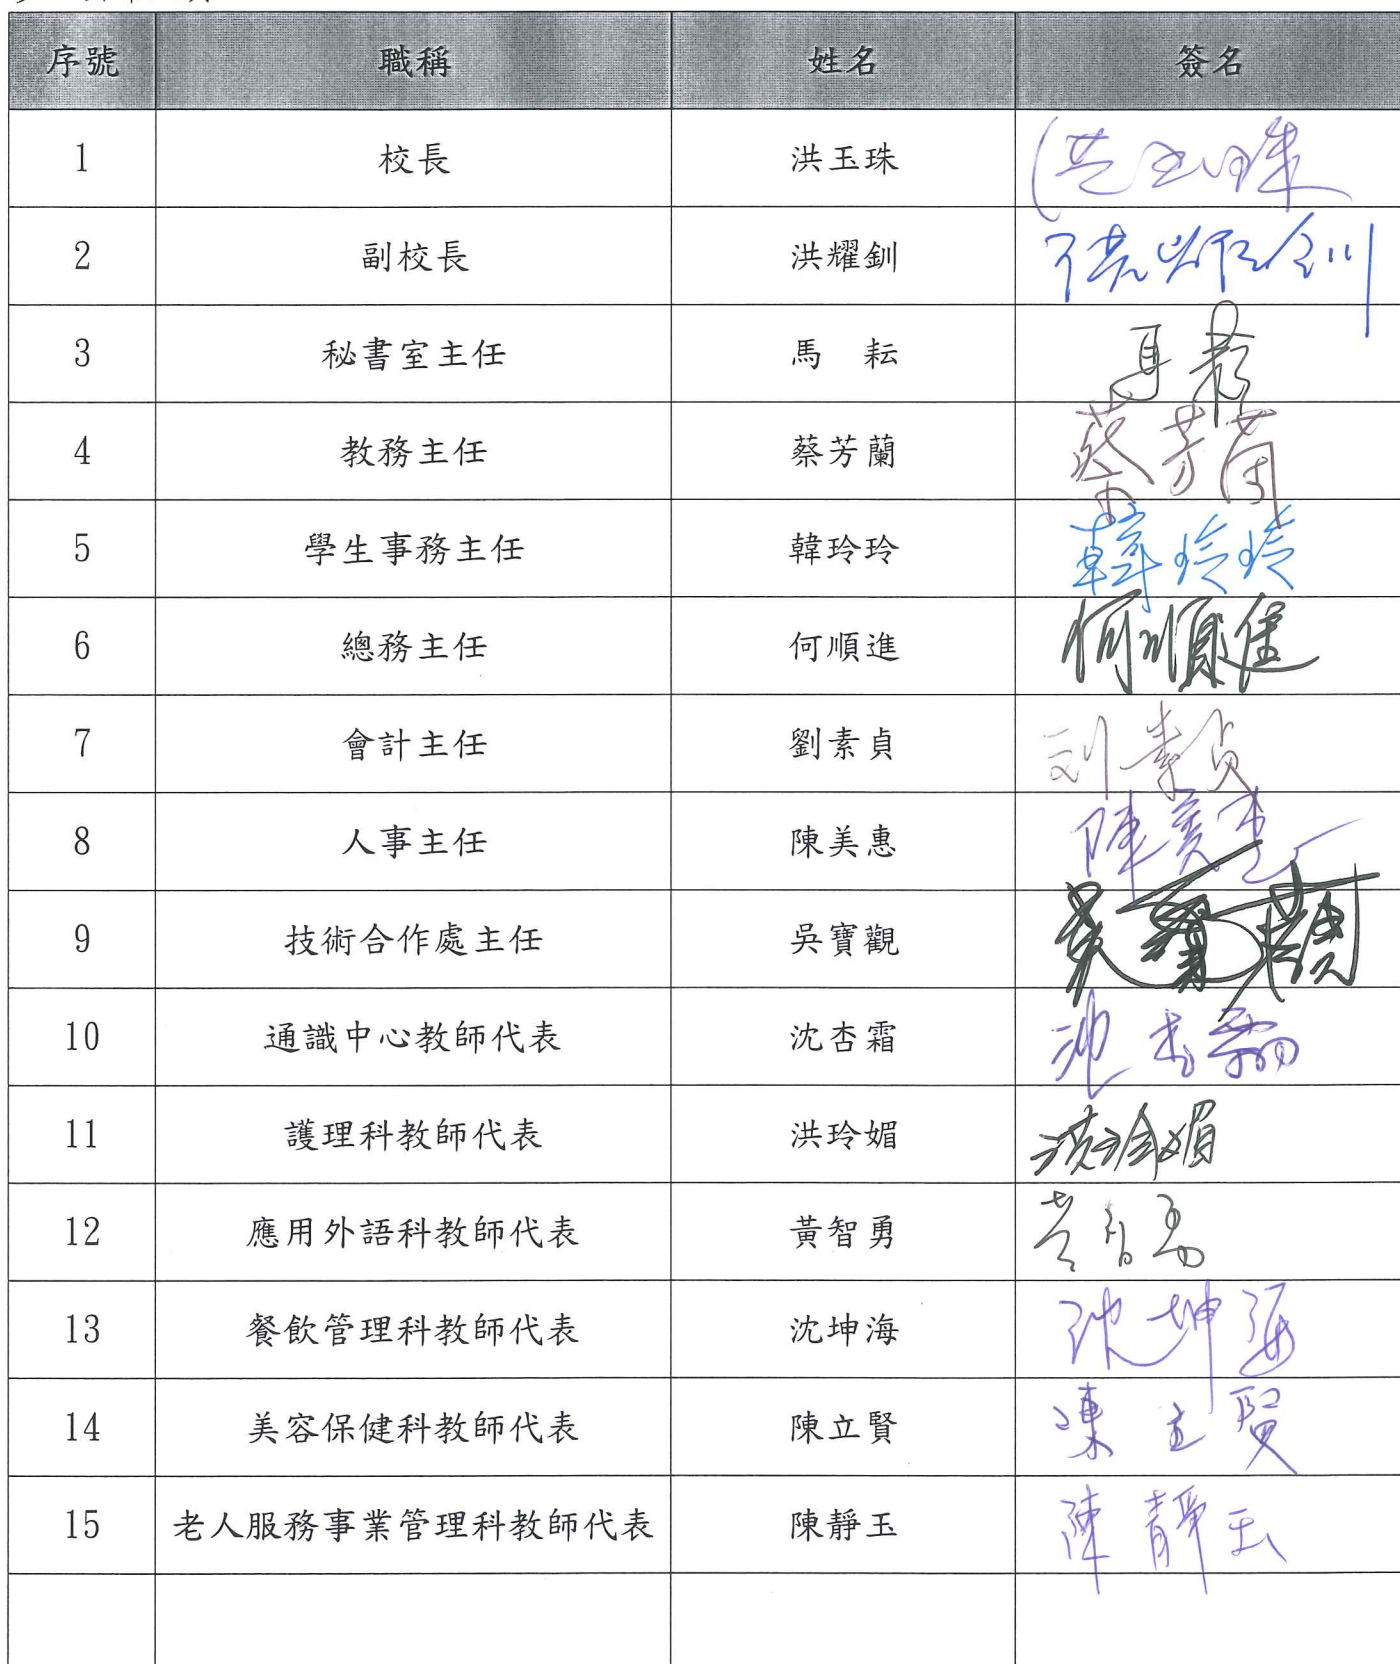 序號 職稱 姓名 簽名
1 校長 洪玉珠 洪玉珠
2 副校長 洪耀釧 洪耀釧
3 秘書室主任 馬 耘 馬耘
4 教務主任 蔡芳蘭 蔡芳蘭
5 學生事務主任 韓玲玲 韓玲玲
6 總務主任 何順進 何順進
7 會計主任 劉素貞 刘素貞
8 人事主任 陳美惠 陳美惠
9 技術合作處主任 吳寶觀
10 通識中心教師代表 沈杏霜 沈杏霜
11 護理科教師代表 洪玲媚 洪玲媚
12 應用外語科教師代表 黃智勇 黃智勇
13 餐飲管理科教師代表 沈坤海 沈坤海
14 美容保健科教師代表 陳立賢 陳立賢
15 老人服務事業管理科教師代表 陳靜玉 陳靜玉